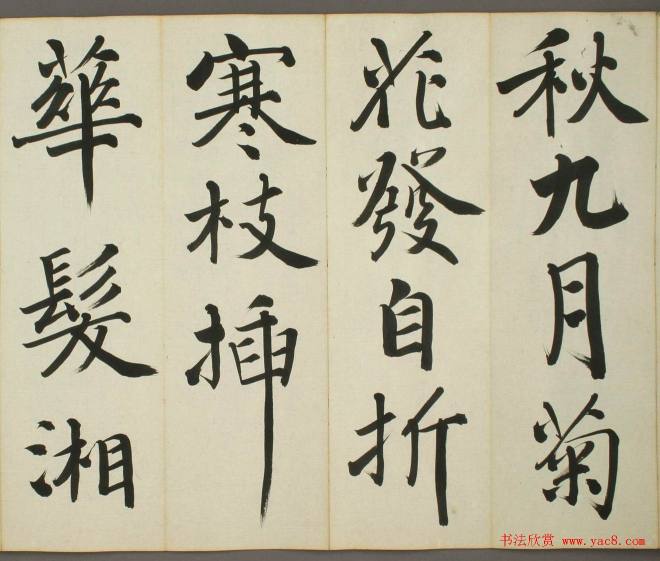 秋九月菊
花發自折
寒枝插
華髮湘
书法欣赏 www.yac8.com